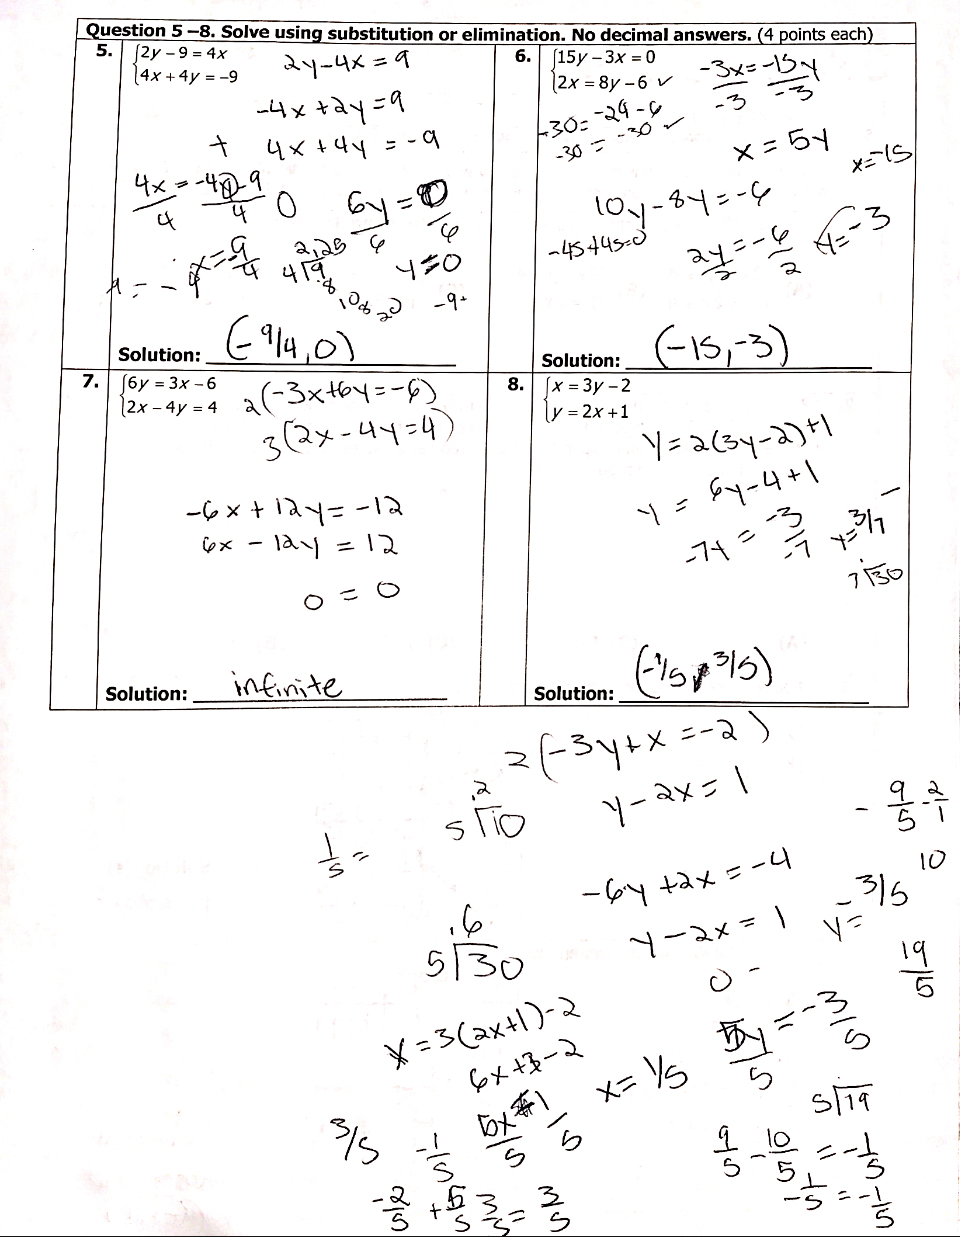 Question 5 –8. Solve using substitution or elimination. No decimal answers. (4 points each)
5.
2y – 9 = 4x
4x + 4y = –9
2y – 4x = 9
-4x + 2y = 9
+ 4x + 4y = -9
0
6y = 0
6
6
y = 0
x = -9/4
2.25
4√9
-9+
Solution: (- 9/4, 0)
6.
15y – 3x = 0
2x = 8y – 6 ✓
-3x = -15y
-3 -3
x = 5y
-30 = -24 - 6
-30 = -30 ✓
x = -15
10y - 8y = -6
-45+45=0
2y = -6
2 2
y = -3
Solution: (-15, -3)
7.
6y = 3x – 6
2x – 4y = 4
2(-3x+6y=-6)
3(2x-4y=4)
-6x + 12y = -12
6x - 12y = 12
0 = 0
Solution: infinite
8.
x = 3y – 2
y = 2x + 1
y = 2(3y-2)+1
y = 6y-4+1
-7y = -3
-7
y = 3/7
7√30
Solution: (-1/5, 3/5)
2(-3y+x = -2)
y - 2x = 1
.2
5√10
1/5 =
- 9/5 - 2/1
10
-6y + 2x = -4
y - 2x = 1
0 -
y = -3/5
19/5
.6
5√30
x = 3(2x+1)-2
6x+3-2
x = 1/5
5y = -3
5 5
5√19
3/5
-1/5
9/5 - 10/5 = -1/5
-1/5 = -1/5
-2/5 + 5/5 3/5 = 3/5